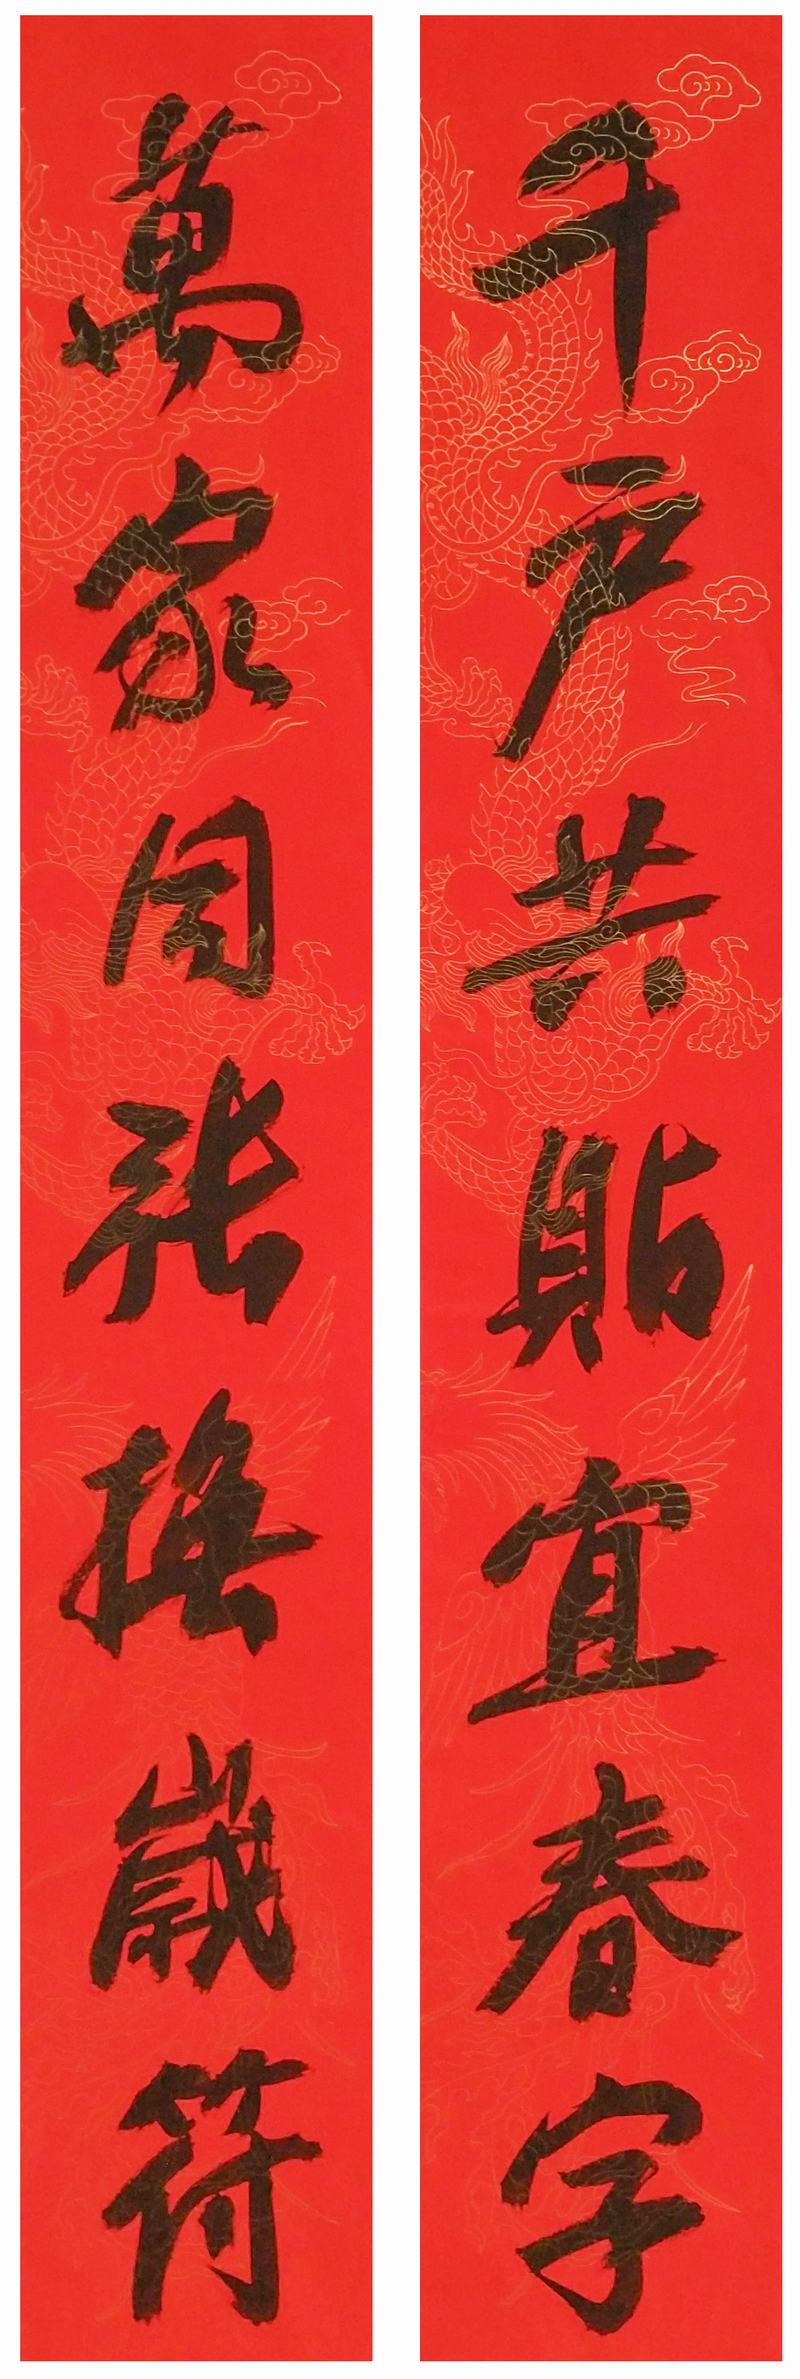 千戶共貼宜春字
萬家同張換歲符